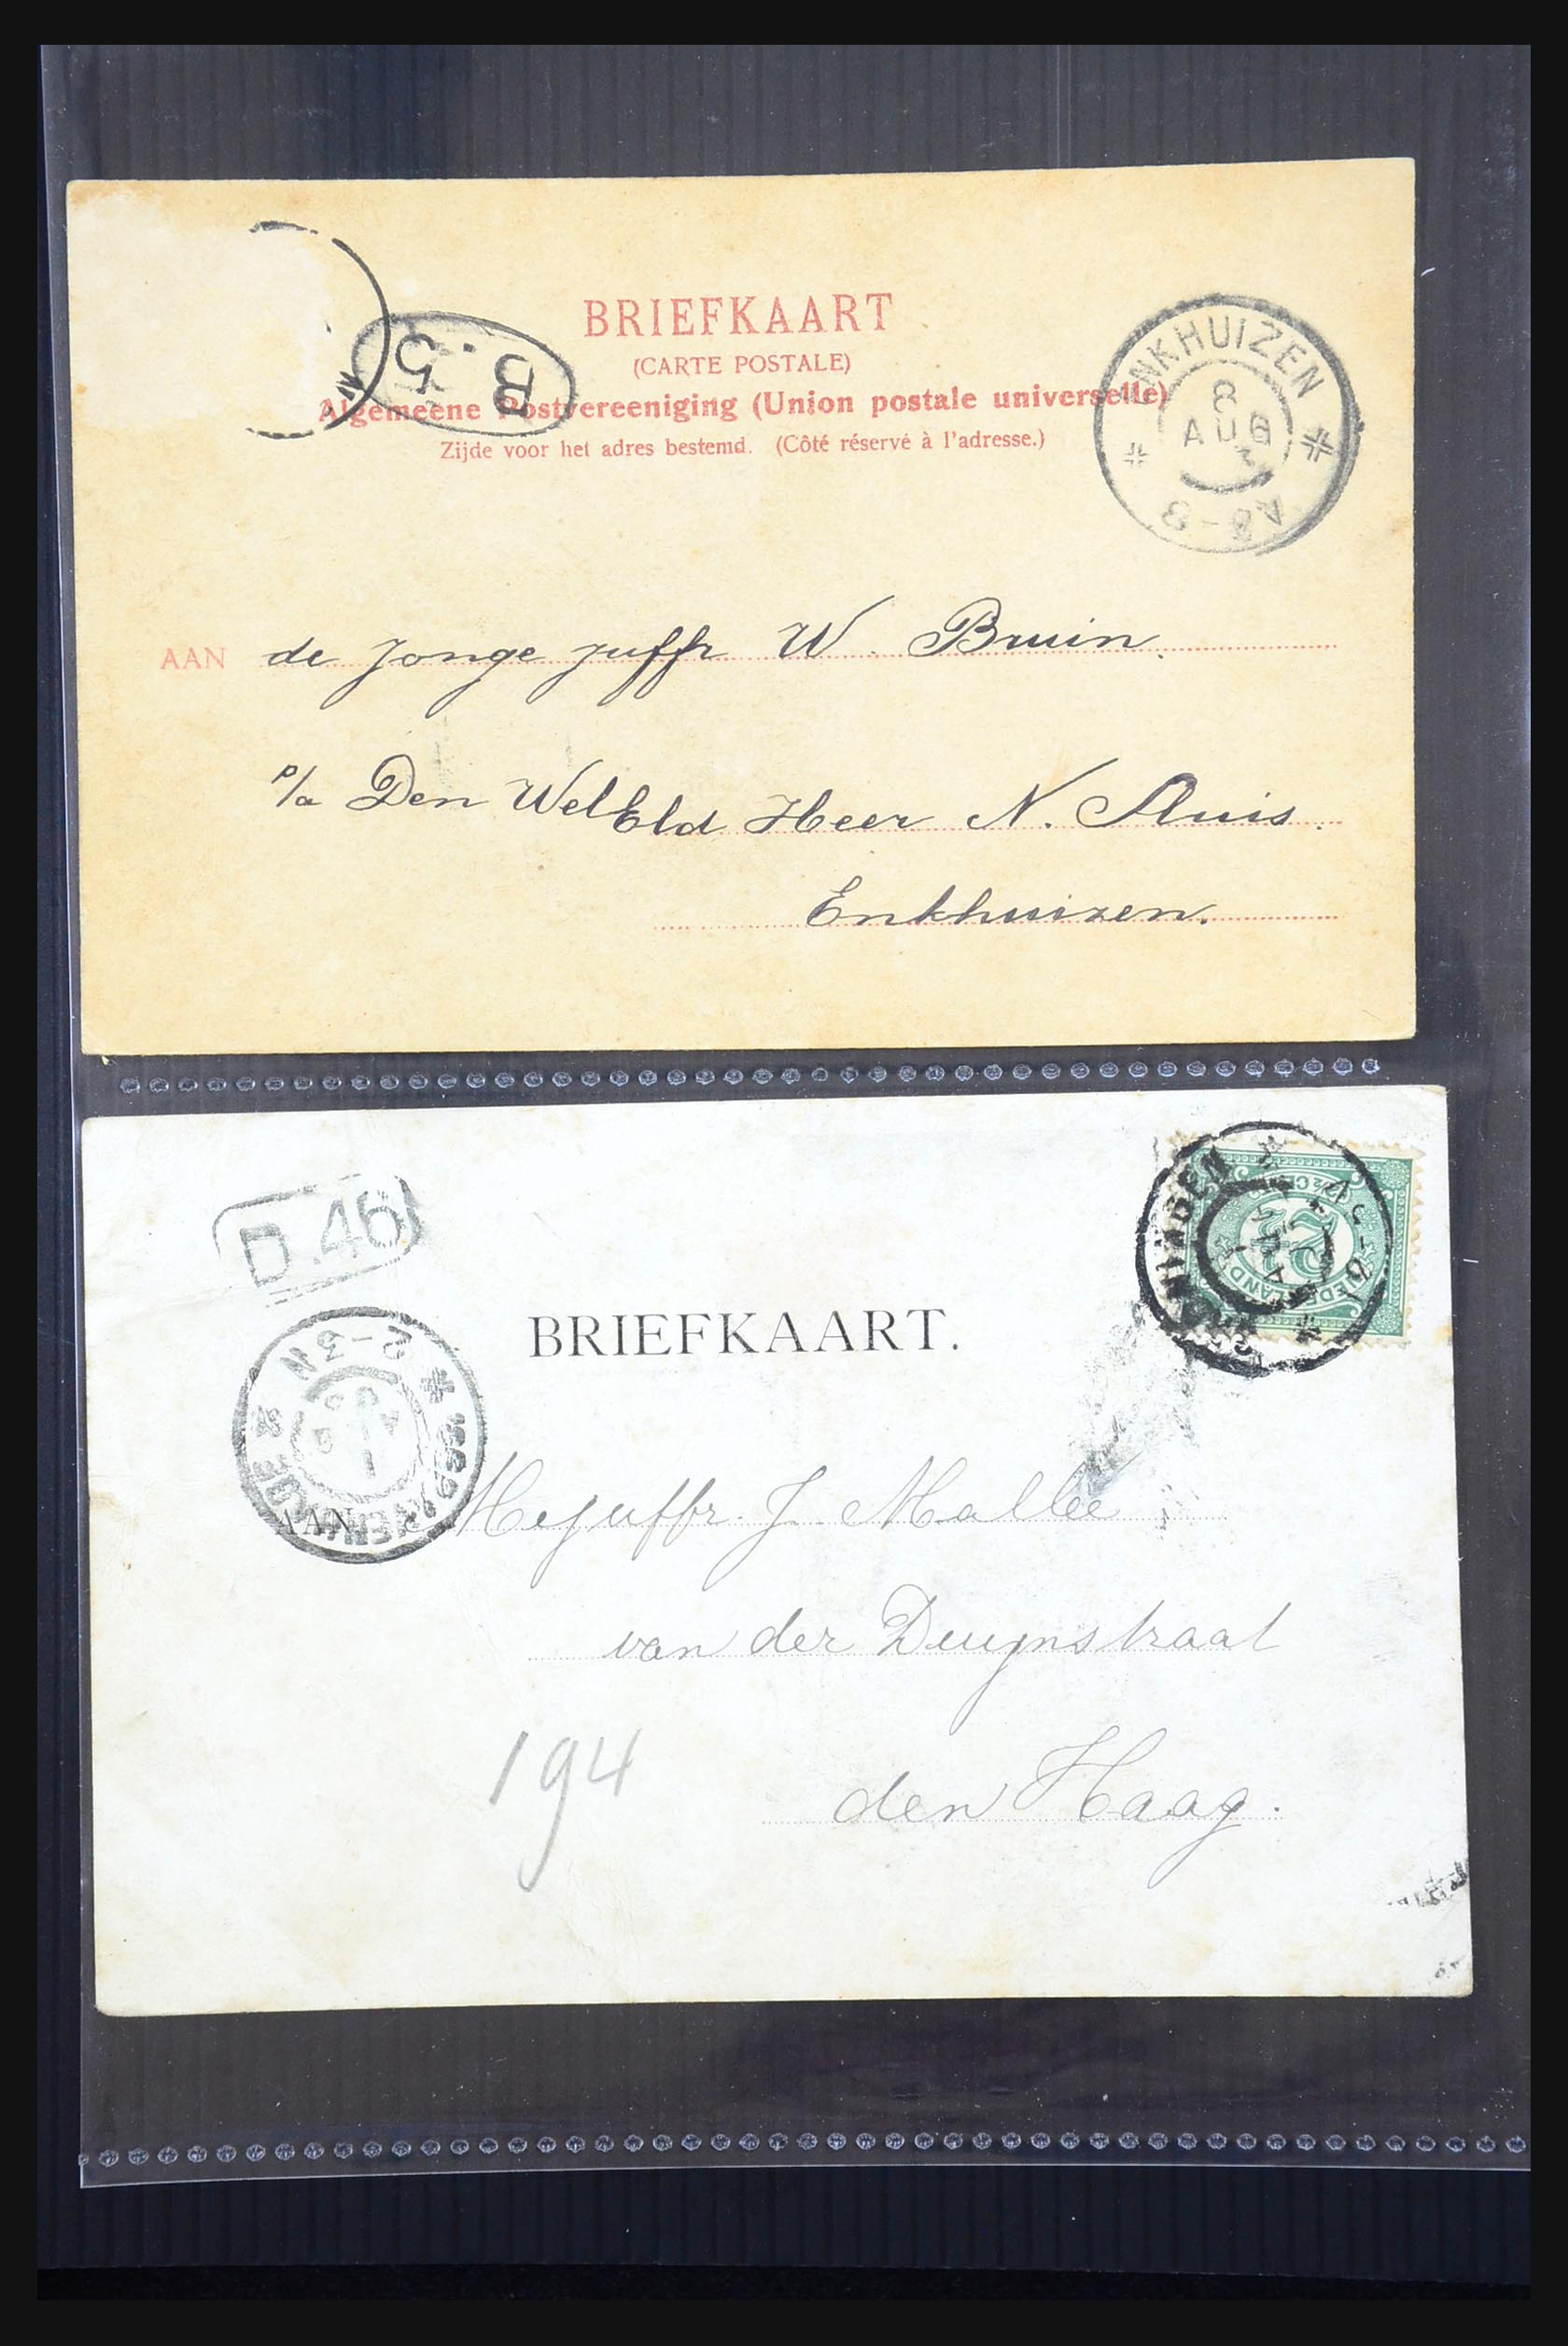 B.5
BRIEFKAART
(CARTE POSTALE)
Algemeene Postvereeniging (Union postale universelle)
Zijde voor het adres bestemd. (Côté réservé à l'adresse.)
ENKHUIZEN
8
AUG
AAN de Jonge juffr W. Bruin.
p/a Den WelEld Heer N. Sluis.
Enkhuizen.
D.46
BRIEFKAART.
2-3N
AAN Mejuffr. J. Mallée
van der Duynstraat
den Haag.
194